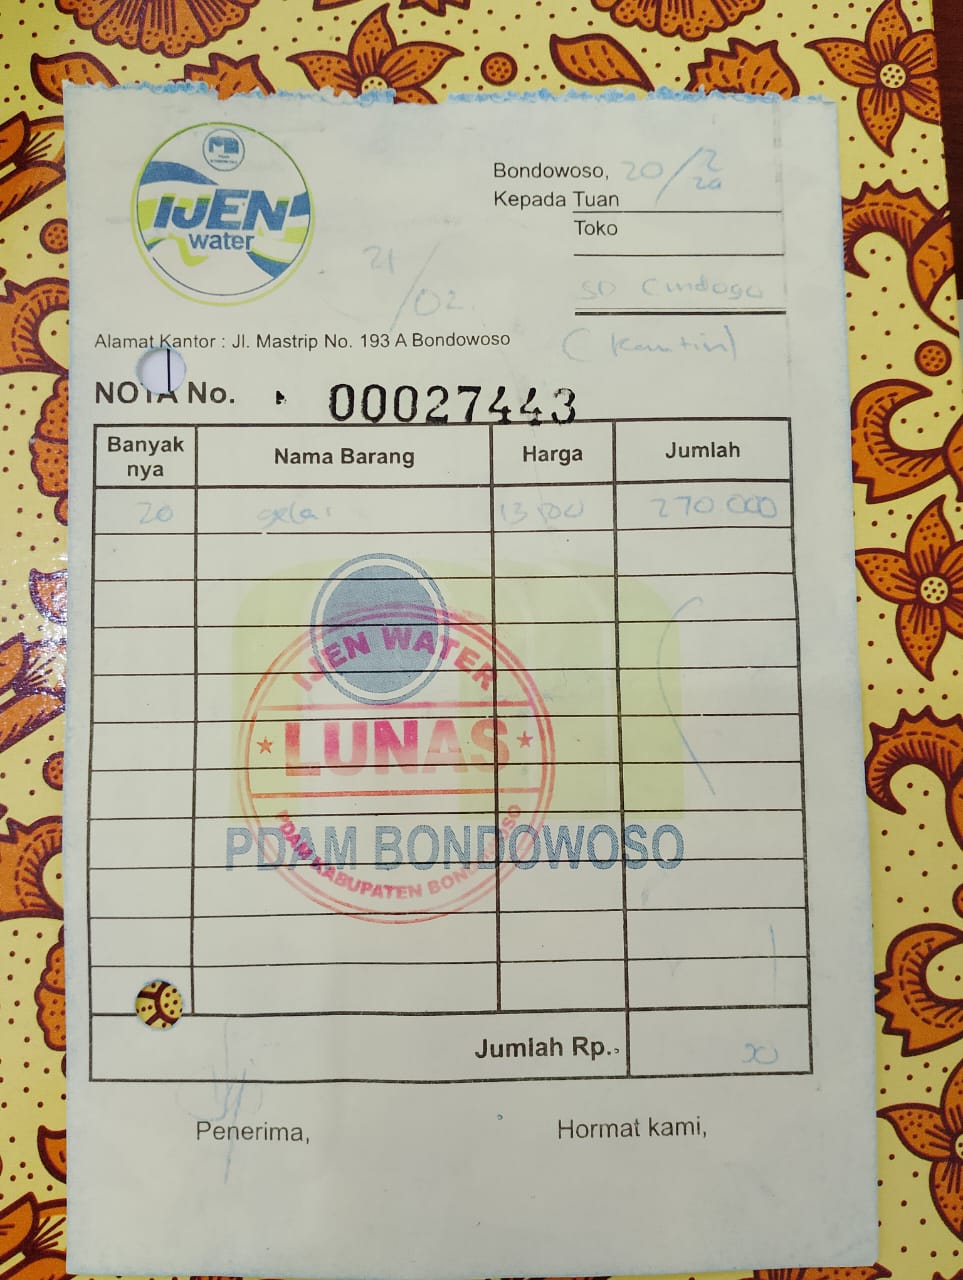 IJEN
water
Bondowoso, 20/2
Kepada Tuan
Toko
21/02
SD Cindogo
(Kantin)
Alamat Kantor : Jl. Mastrip No. 193 A Bondowoso
NOTA No. 00027443
Banyak nya Nama Barang Harga Jumlah
20 gelas 270.000
IJEN WATER
LUNAS
PDAM KABUPATEN BONDOWOSO
PDAM BONDOWOSO
Jumlah Rp.
Penerima, Hormat kami,